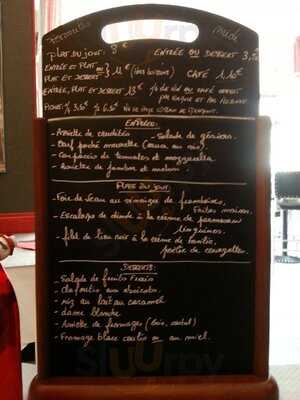 Formules midi
PLAT DU JOUR : 9 € ENTRÉE OU DESSERT 3,5
ENTRÉE ET PLAT ou
PLAT ET DESSERT 11 € (hors boisson) CAFÉ 1,10 €
ENTRÉE, PLAT ET DESSERT 13 €
PICHET :
ENTRÉES :
- Assiette de crudités - Salade de gésiers.
- Oeuf poché meurette (sauce au vin).
- Carpaccio de tomates et mozzarella.
- Assiette de jambon et melon.
PLATS DU JOUR
- Foie de veau au vinaigre de framboises,
frites maison.
- Escalope de dinde à la crème de parmesan
linguines.
- filet de lieu noir à la crème de
poêlée de courgettes.
DESSERTS :
- Salade de fruits Frais
- Clafoutis aux abricots.
- riz au lait au caramel
- dame blanche
- Assiette de fromages (brie, cantal)
- Fromage blanc coulis ou au miel.
sluurpy